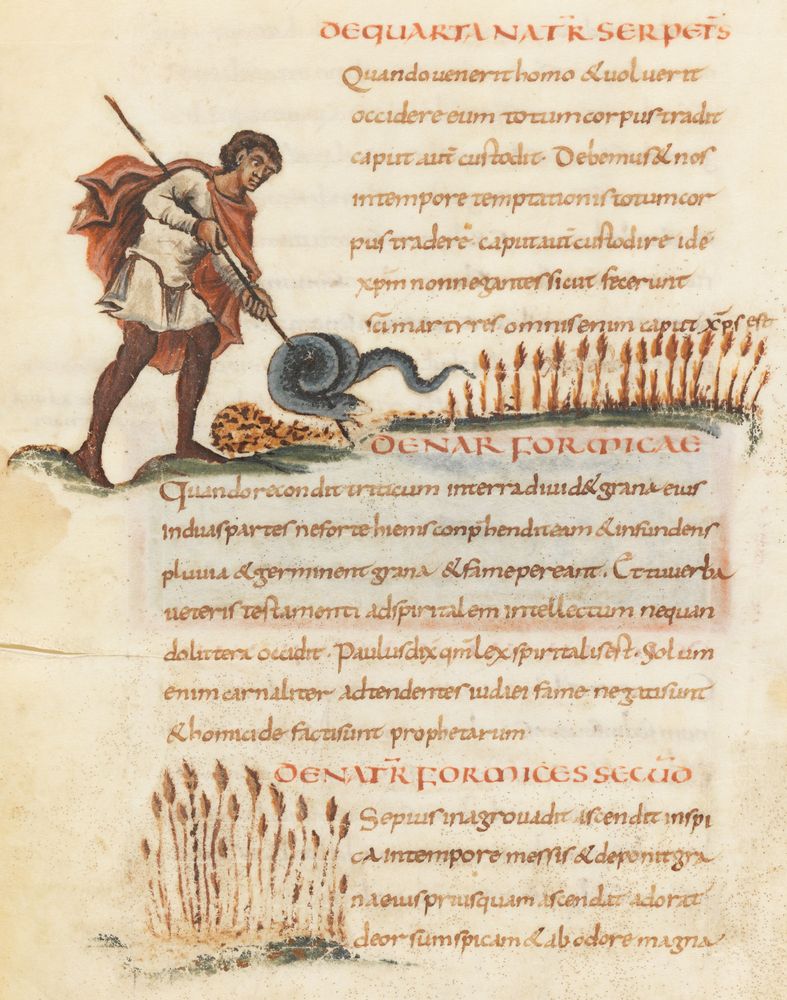 DE QUARTA NAT̄R SERPET̄S
Quando venerit homo & voluerit
occidere eum totum corpus tradit
caput aut̄ custodit. Debemus & nos
in tempore temptationis totum cor
pus tradere caput aut̄ custodire id ē
xp̄m non negantes sicut fecerunt
sc̄i martyres omnis enim caput xp̄s est
DE NAR FORMICAE
Quando recondit triticum in terra dividet grana eius
in duas partes ne forte hiems conp̄hendit eam & infundens
pluvia & germinent grana & fame pereant. Et tu verba
veteris testamenti ad spiritalem intellectum ne quan
do littera occidit. Paulus dix̄ qm̄ lex spiritalis est. Solum
enim carnaliter adtendentes iudei fame negati sunt
& homicide facti sunt prophetarum
DE NAT̄R FORMICES SECUD̄O
Sepius in agro vadit ascendit in spi
ca in tempore messis & deponit gra
na eius priusquam ascendat adorat
deorsum spicam & ab odore magna